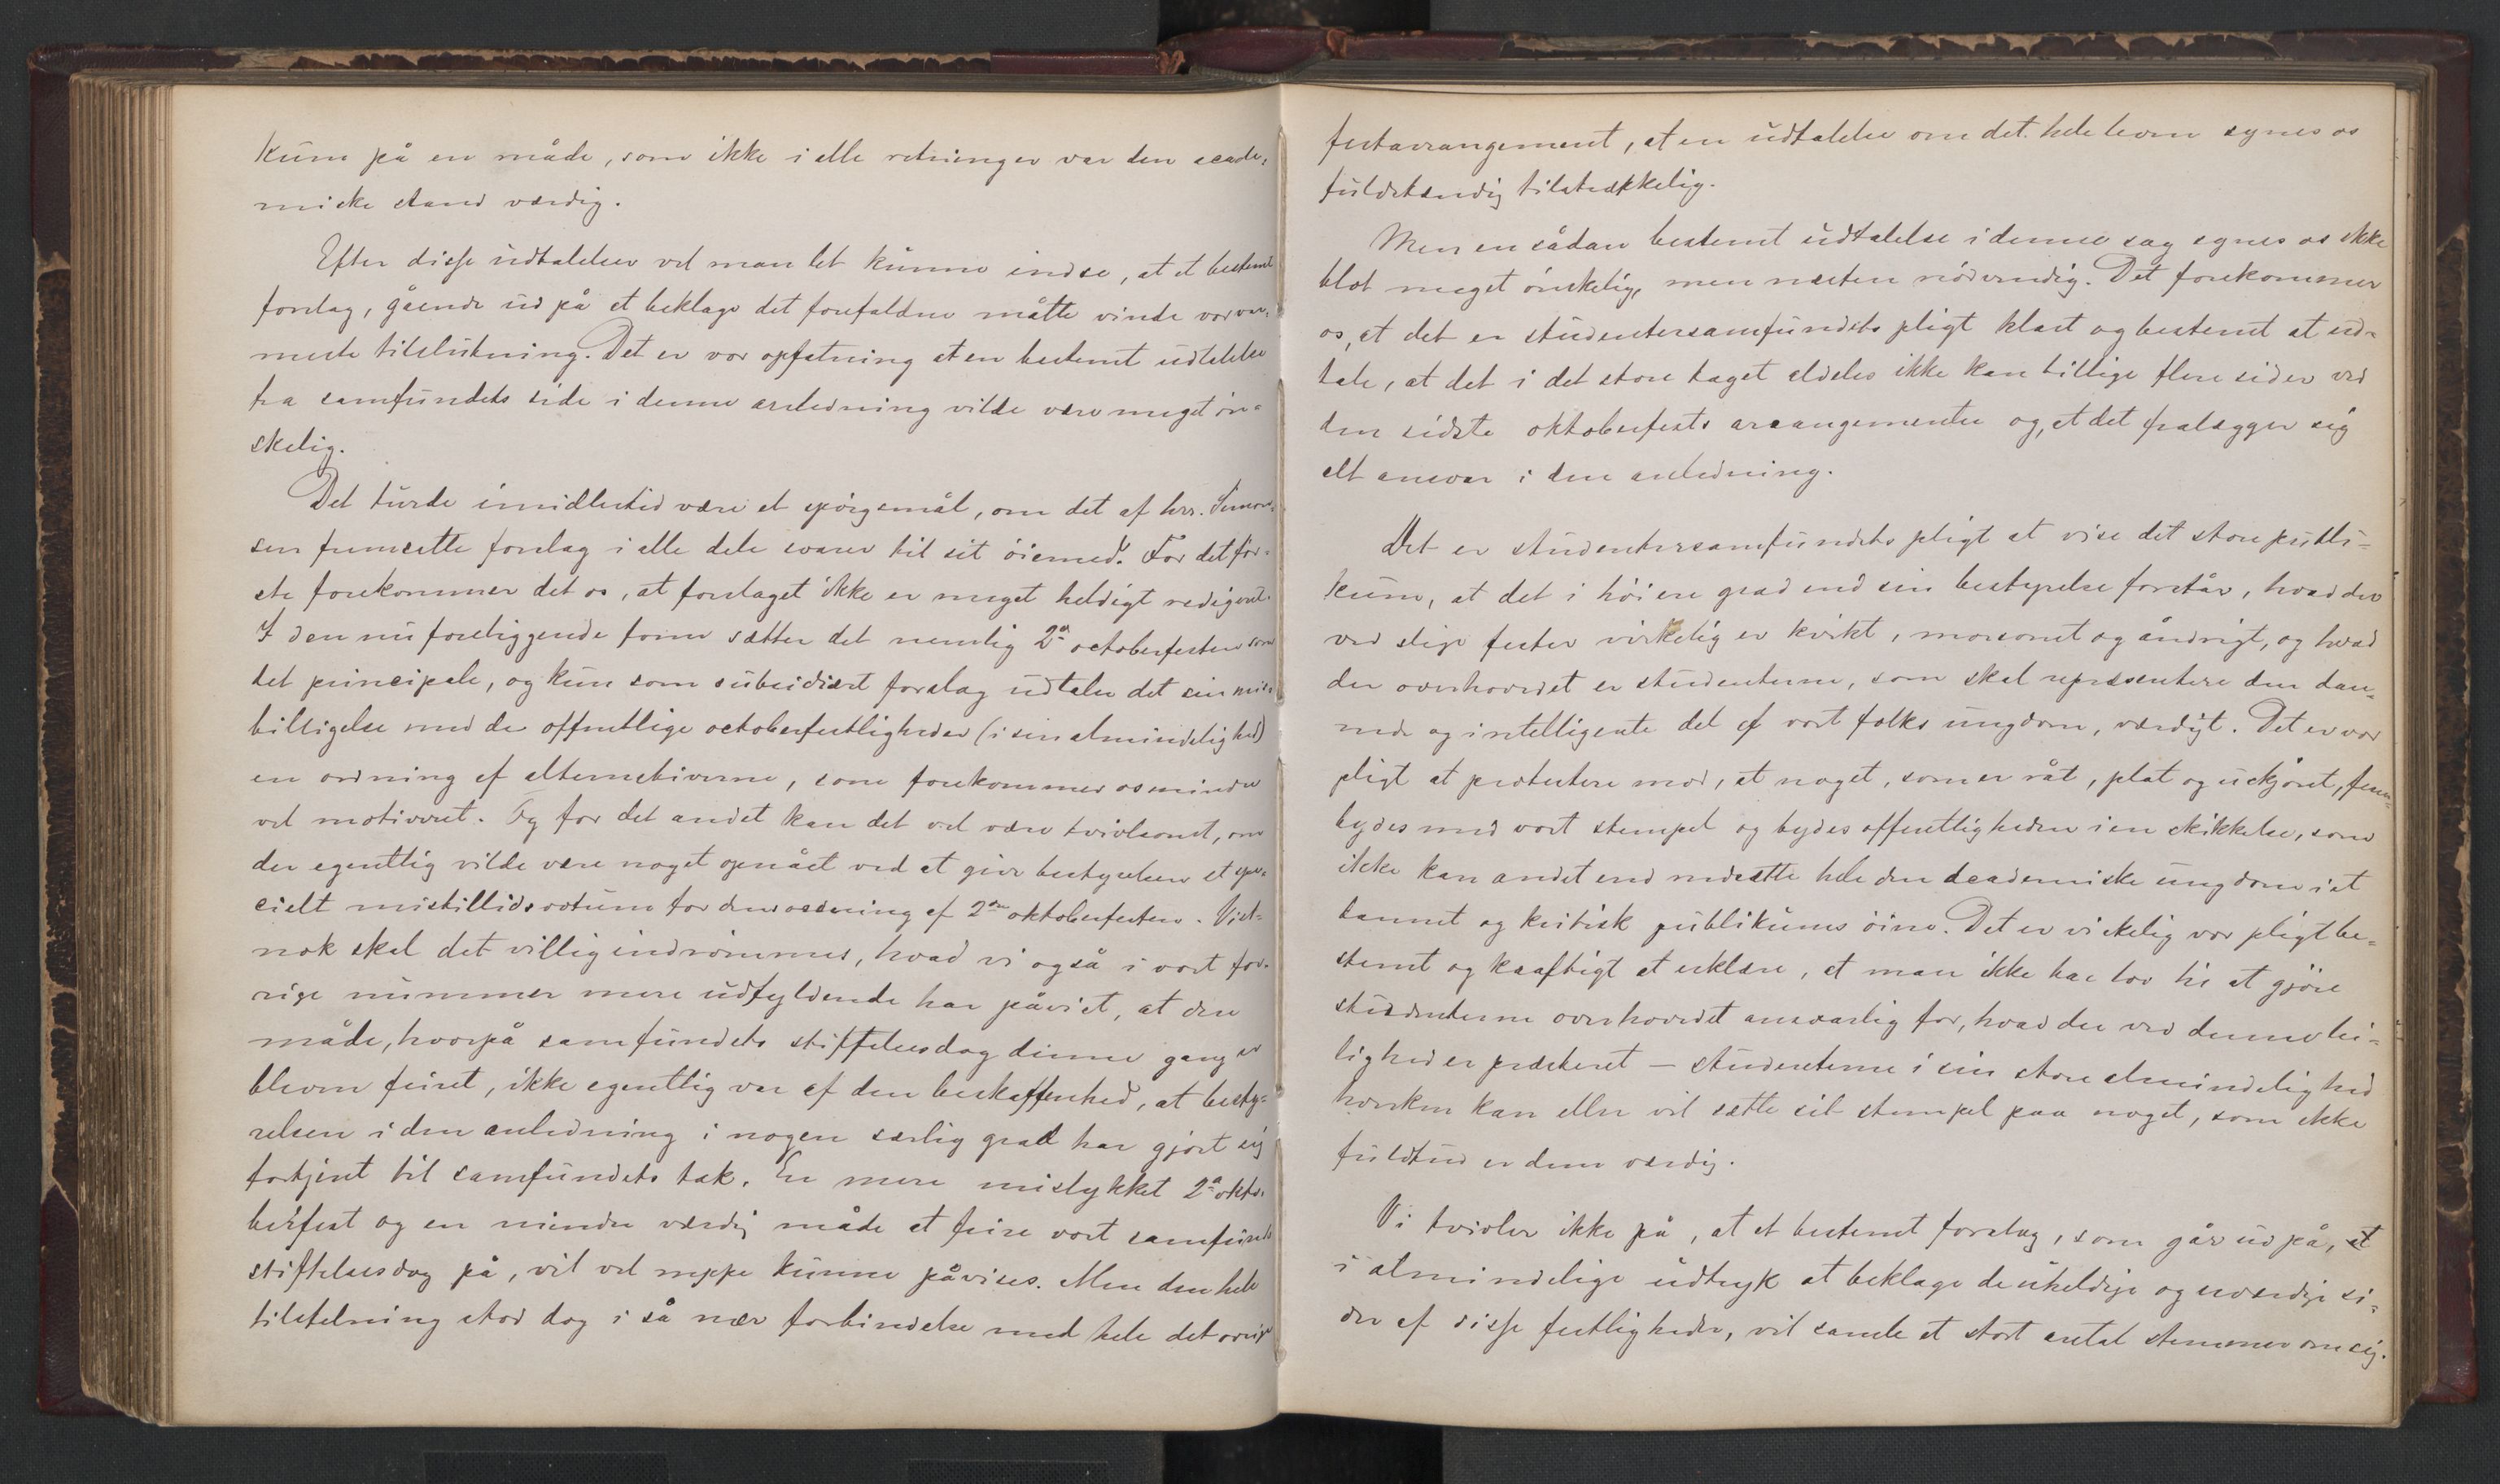 kum på en måde, som ikke i alle retninger var den acade-
miske stand værdig.
Efter disse udtalelser vil man let kunne indse, at et bestemt
forslag, gående ud på at beklage det forefaldne måtte vinde vor var-
meste tilslutning. Det er vor opfatning at en bestemt udtalelse
fra samfundets side i denne anledning vilde være meget øn-
skelig.
Det turde imidlertid være et spörgsmål, om det af hrr. Simon-
sen fremsatte forslag i alle dele svarer til sit öiemed. For det för-
ste forekommer det os, at forslaget ikke er meget heldigt redigeret.
I den nu foreliggende form sætter det nemlig 2den octoberfesten som
det principale, og kun som subsidiært forslag udtaler det sin mis-
billigelse med de offentlige octoberfestligheder (i sin almindelighed)
en ordning af alternativerne, som forekommer os mindre
vel motiveret. Og for det andet kan det vel være tvivlsomt, om
der egentlig vilde være noget opnået ved at give bestyrelsen et spe-
cielt mistillidsvotum for dens ordning af 2den oktoberfesten. Vist-
nok skal det villig indrömmes, hvad vi også i vort for-
rige nummer mere udfyldende har påvist, at den
måde, hvorpå samfundets stiftelsesdag denne gang er
bleven feiret, ikke egentlig var af den beskaffenhed, at besty-
relsen i den anledning i nogen særlig grad har gjort sig
fortjent til samfundets tak. En mere mislykket 2den okto-
berfest og en mindre værdig måde at feire vort samfunds
stiftelsesdag på, vil vel neppe kunne påvises. Men den hele
tilstelning stod dog i så nær forbindelse med hele det øvrige
festarrangement, at en udtalelse om det hele lovm synes os
fuldstændig tilstrækkelig.
Men en sådan bestemt udtalelse i denne sag synes os ikke
blot meget önskelig, men næsten nödvendig. Det forekommer
os, at det er studentersamfundets pligt klart og bestemt at ud-
tale, at det i det store taget aldeles ikke kan billige flere sider ved
den sidste oktoberfests arrangementer og, at det fralægger sig
alt ansvar i den anledning.
Det er studentersamfundets pligt at vise det store publi-
kum, at det i höiere grad end sin bestyrelse forstår, hvad der
ved slige fester virkelig er kvikt, morsomt og åndrigt, og hvad
der overhovedet er studenterne, som skal repræsentere den dan-
nede og intelligente del af vort folks ungdom, værdigt. Det er vor
pligt at protestere mod, at noget, som er råt, plat og uskjönt, frem-
bydes med vort stempel og bydes offentligheden i en skikkelse, som
ikke kan andet end nedsætte hele den academiske ungdom i et
dannet og kritisk publikums öine. Det er virkelig vor pligt be-
stemt og kraftigt at erklære, at man ikke har lov til at gjöre
studenterne overhovedet ansvarlig for, hvad der ved denne lei-
lighed er præsteret — studenterne i sin store almindelighed
hverken kan eller vil sætte sit stempel paa noget, som ikke
fuldtud er dem værdig.
Vi tvivler ikke på, at et bestemt forslag, som går ud på, at
i almindelige udtryk at beklage de uheldige og uværdige si-
der af disse festligheder, vil samle et stort antal stemmer om sig.